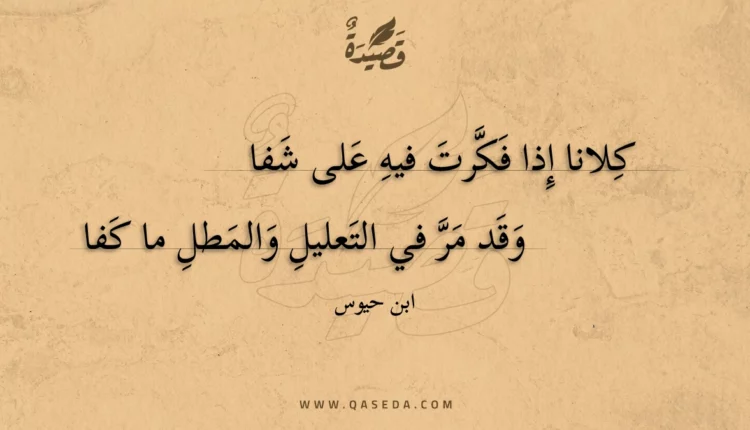 قَصِيْدَةٌ
كِلانا إِذا فَكَّرتَ فيهِ عَلى شَفا
وَقَد مَرَّ في التَعليلِ وَالمَطلِ ما كَفا
ابن حيوس
WWW.QASEDA.COM